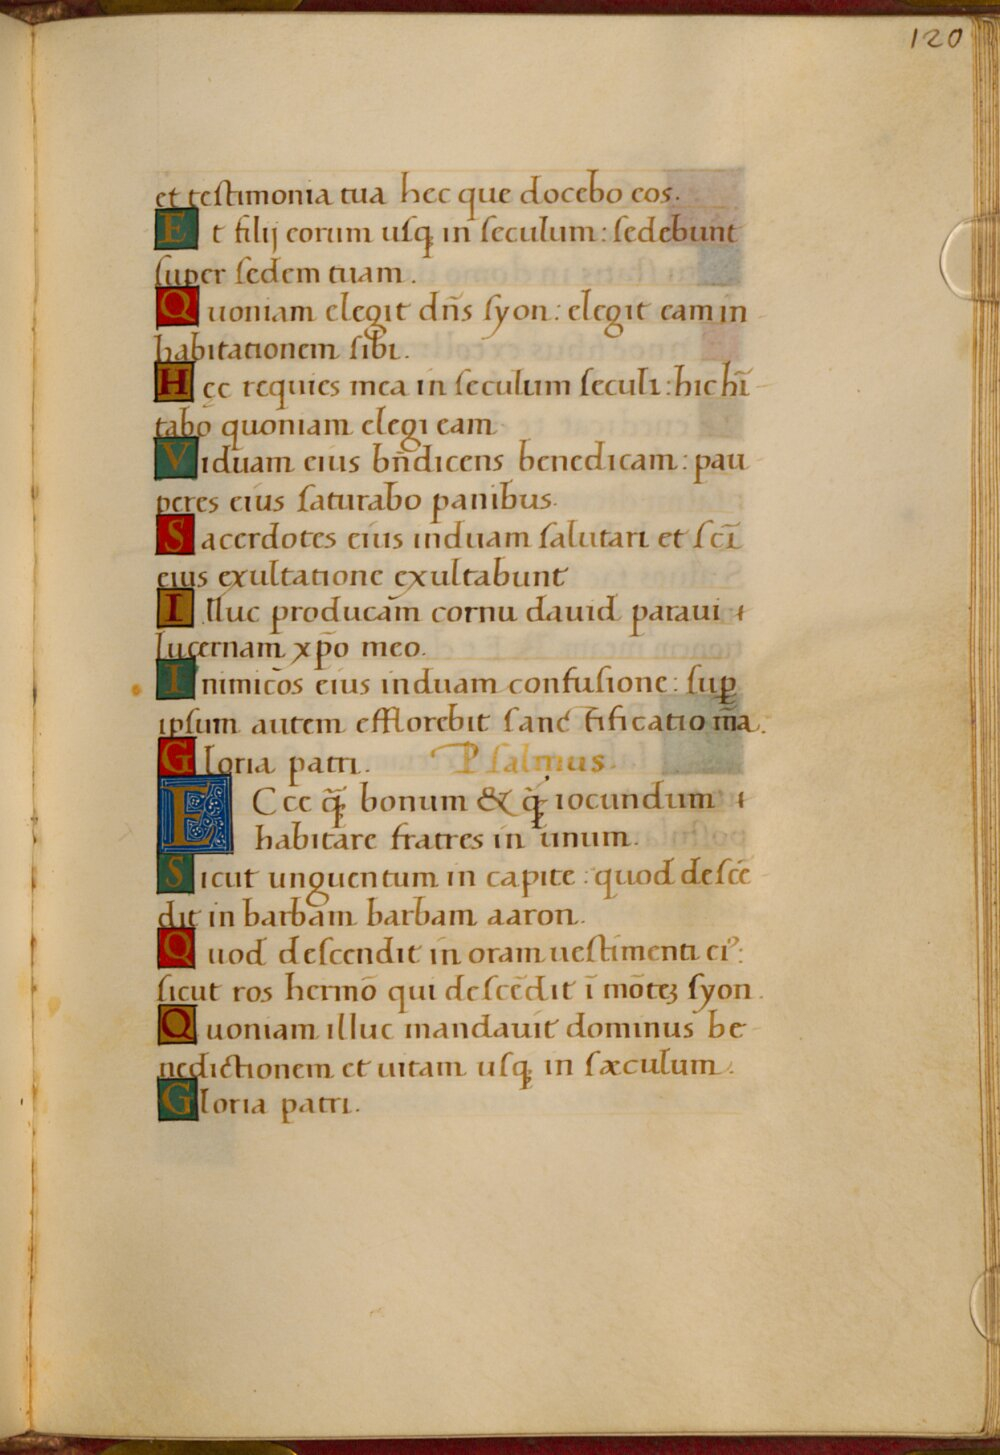 120
et testimonia tua hec que docebo eos.
Et filij eorum usq̨ in seculum: sedebunt
super sedem tuam.
Quoniam elegit dn̄s syon: elegit eam in
habitationem sibi.
Hęc requies mea in seculum seculi: hic hī
tabo quoniam elegi eam
Viduam eius bn̄dicens benedicam: pau
peres eius saturabo panibus.
Sacerdotes eius induam salutari et scī
eius exultatione exultabunt
Illuc producam cornu dauid paraui
lucernam xp̄o meo.
Inimicos eius induam confusione: sup̱
ipsum autem efflorebit sanctificatio m̄a.
Gloria patri. Psalmus.
ECce q̨̄ bonum & q̨̄ iocundum
habitare fratres in unum.
Sicut unguentum in capite: quod descē
dit in barbam barbam aaron.
Quod descendit in oram uestimenti eiꝰ:
sicut ros hermō qui descēdit ī mōteꝫ syon.
Quoniam illuc mandauit dominus be
nedictionem et uitam usq̨ in sæculum.
Gloria patri.